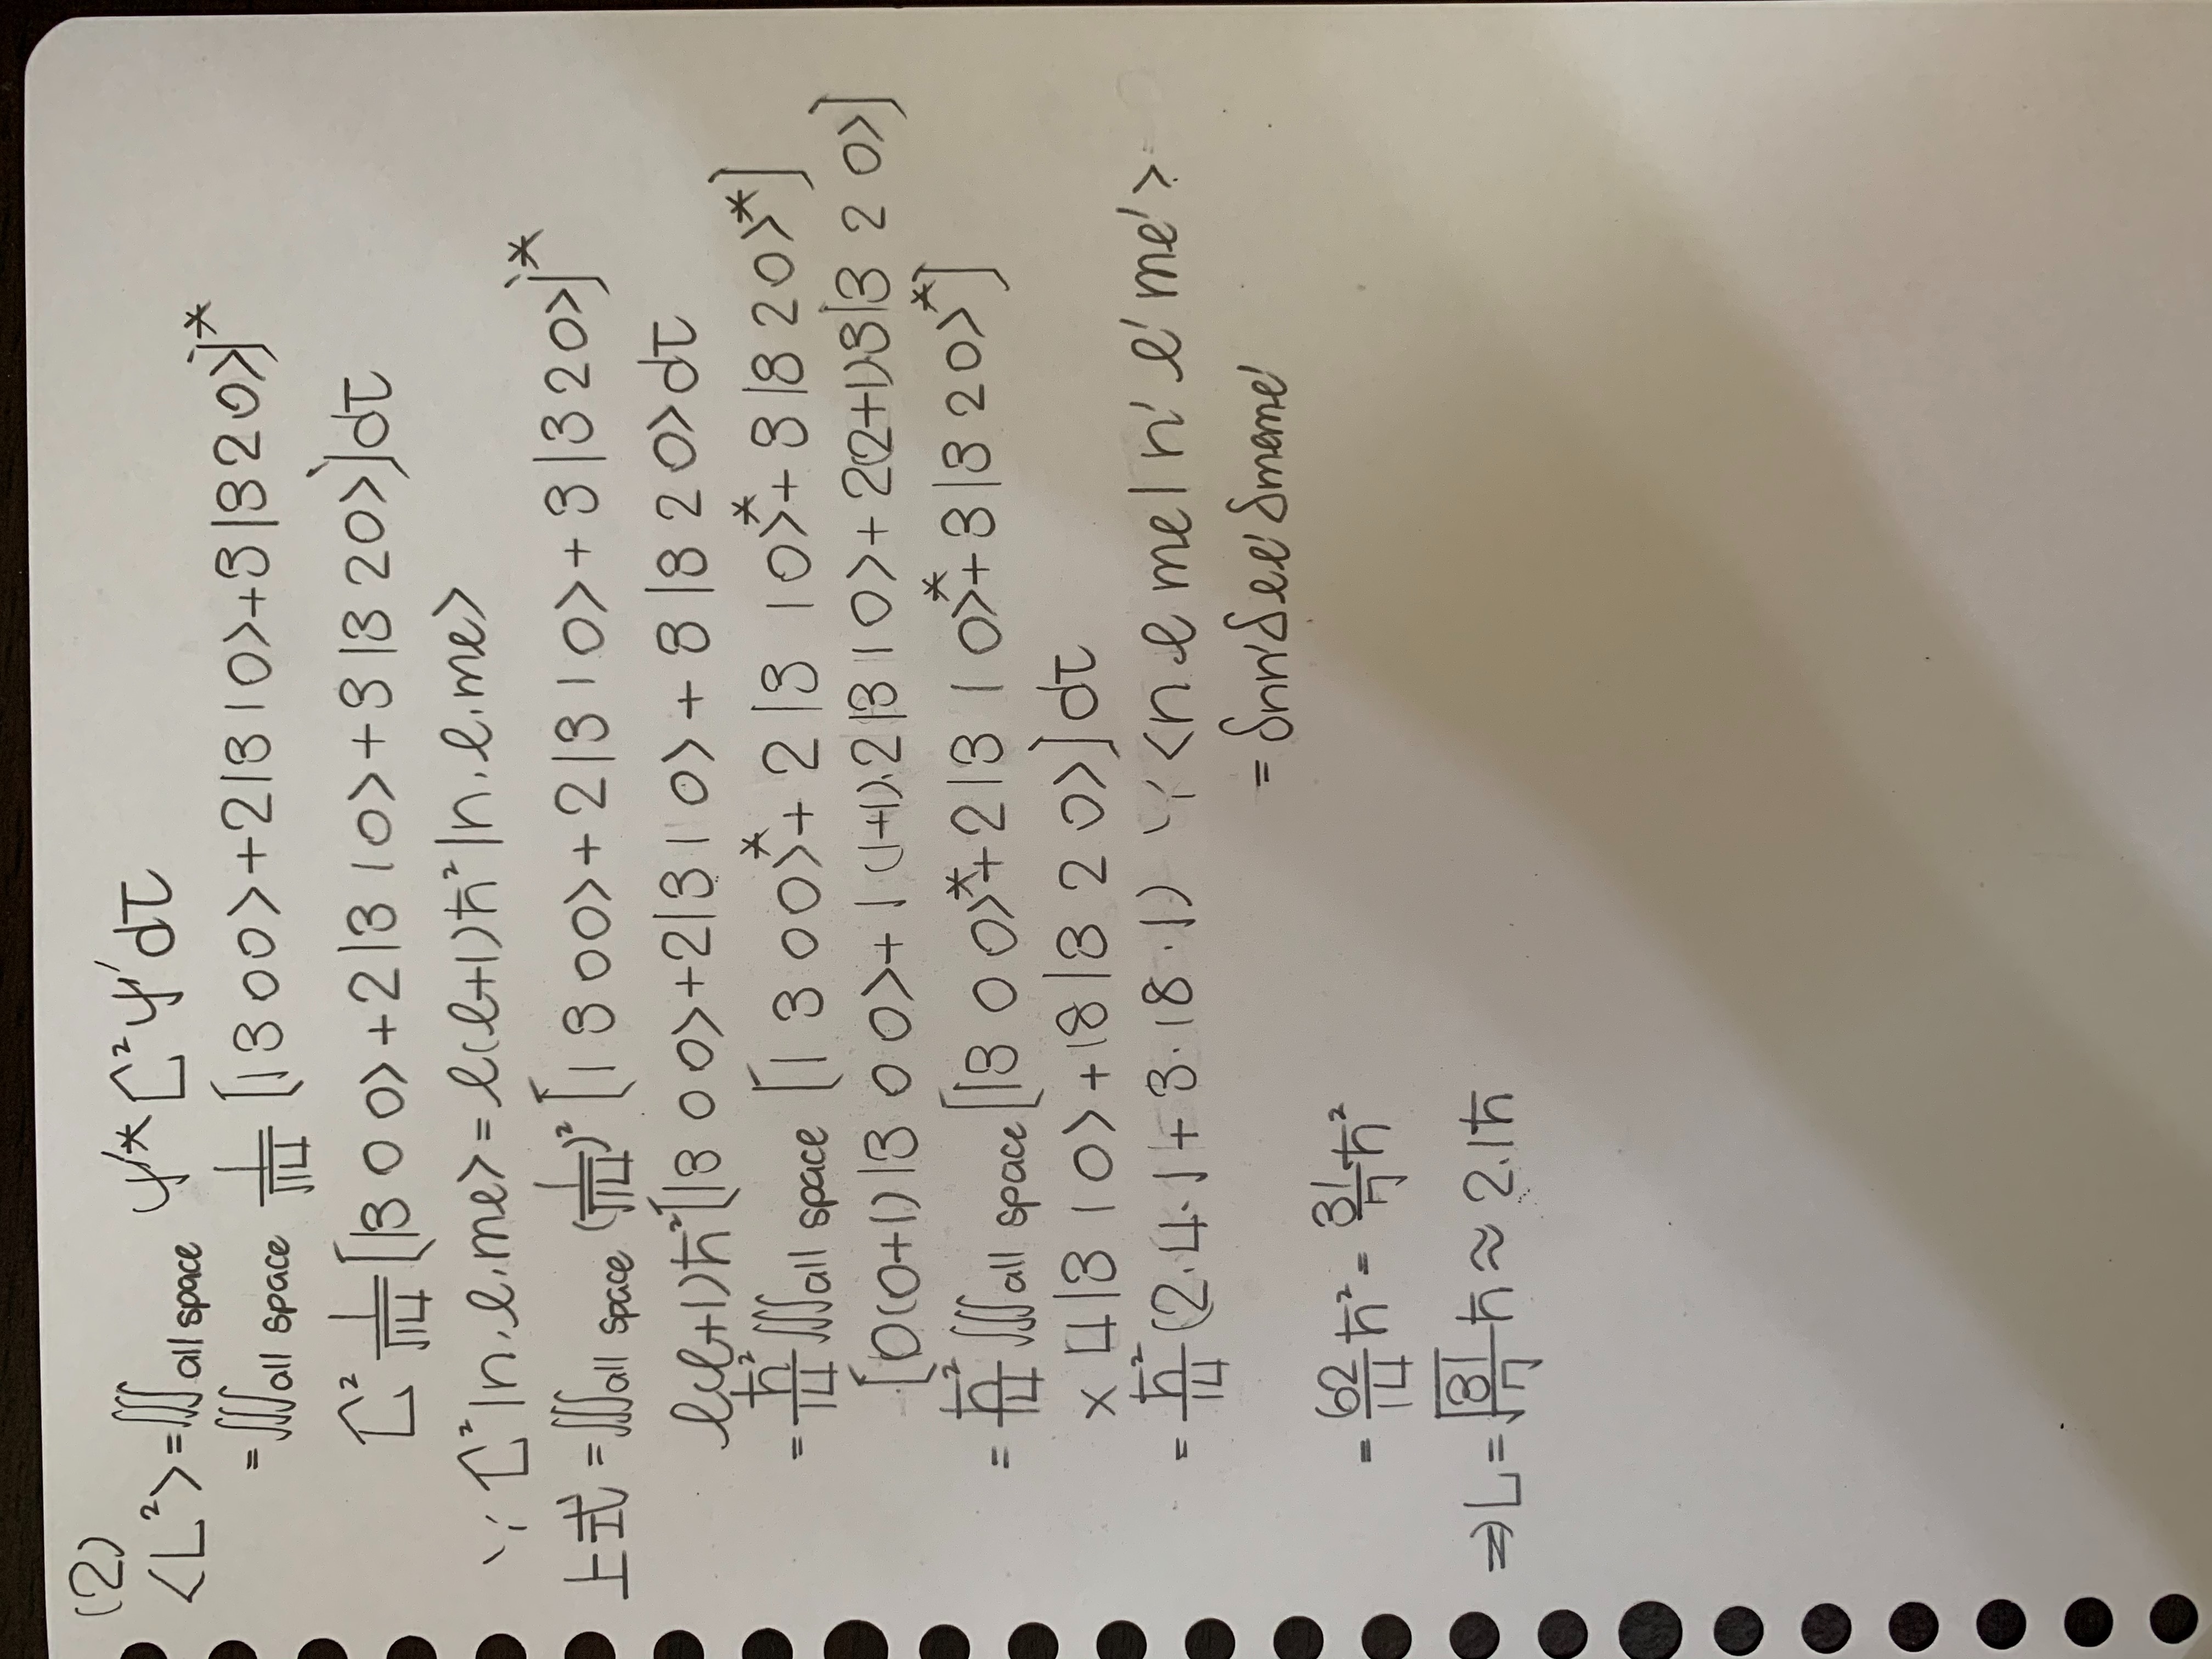 (2)
<L²> = ∭all space ψ'* L̂² ψ' dτ
= ∭all space 1/√14 [|3 0 0> + 2|3 1 0> + 3|3 2 0>]*
L̂² 1/√14 [|3 0 0> + 2|3 1 0> + 3|3 2 0>] dτ
∵ L̂² |n, ℓ, mℓ> = ℓ(ℓ+1)ħ² |n, ℓ, mℓ>
上式 = ∭all space (1/√14)² [|3 0 0> + 2|3 1 0> + 3|3 2 0>]*
ℓ(ℓ+1)ħ² [|3 0 0> + 2|3 1 0> + 3|3 2 0> dτ
= ħ²/14 ∭all space [|3 0 0>* + 2|3 1 0>* + 3|3 2 0>*]
[0(0+1)|3 0 0> + 1(1+1)·2|3 1 0> + 2(2+1)·3|3 2 0>]
= ħ²/14 ∭all space [|3 0 0>* + 2|3 1 0>* + 3|3 2 0>*]
× 4|3 1 0> + 18|3 2 0>] dτ
= ħ²/14 (2·4·1 + 3·18·1) ∵ <n ℓ mℓ|n' ℓ' mℓ'>
= δnn' δℓℓ' δmℓmℓ'
= 62/14 ħ² = 31/7 ħ²
⇒ L = √31/7 ħ ≈ 2.1ħ